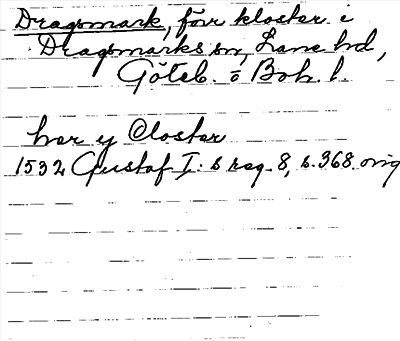 Dragsmark, förr kloster i
Dragsmarks sn, Lane hd,
Göteb. o Boh. l.
her y Closter
1532 Gustaf I:s reg. 8, s. 368. orig